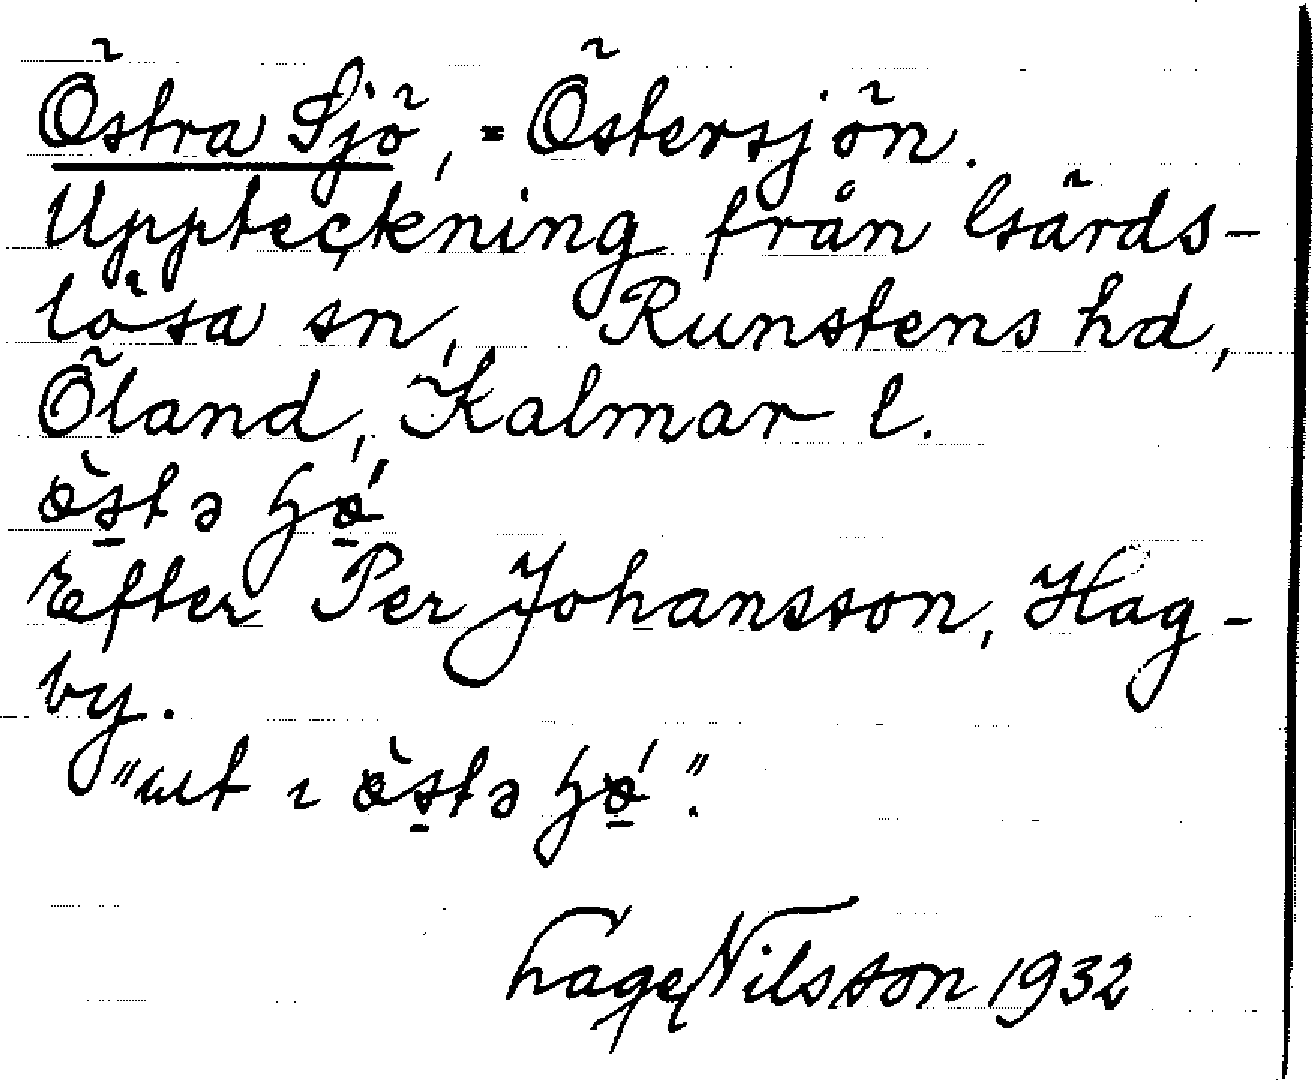 Östra Sjö, = Östersjön.
Uppteckning från Gärds-
lösa sn, Runstens hd,
Öland, Kalmar l.
Efter Per Johansson, Hag-
by.
Nilsson 1932